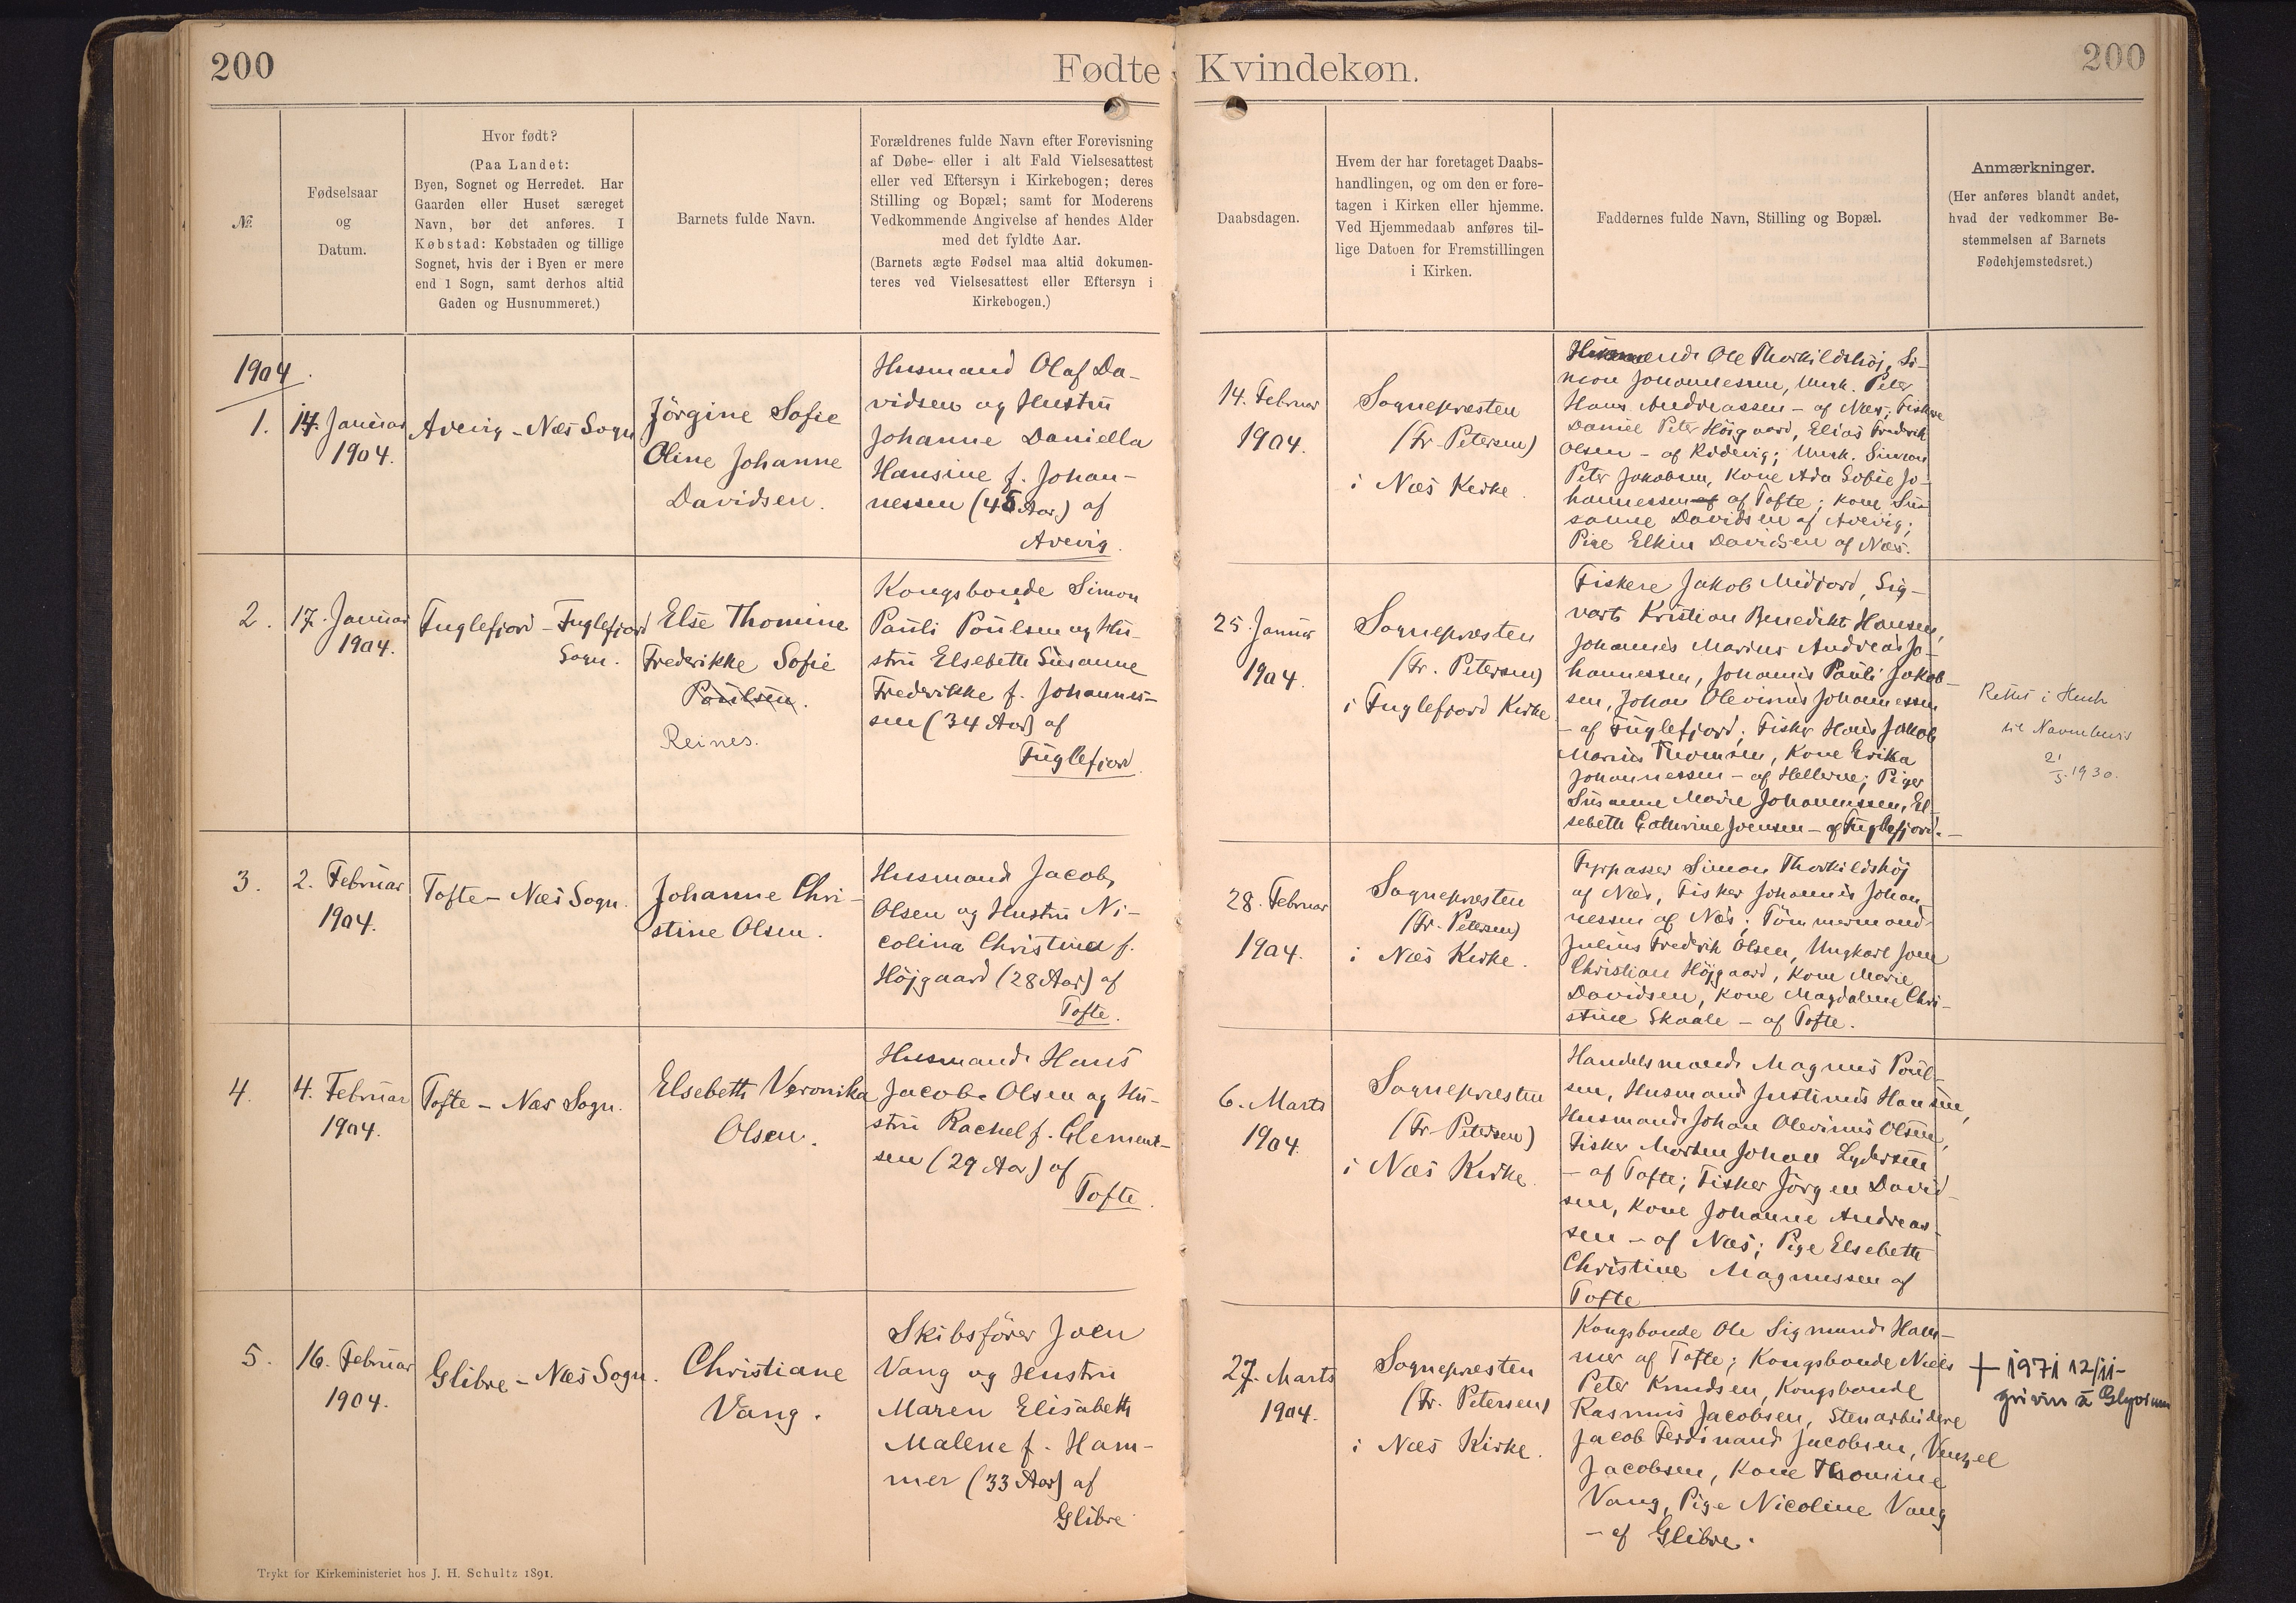 200
Fødte Kvindekøn.
200
№
Fødselsaar
og
Datum.
Hvor født?
(Paa Landet:
Byen, Sognet og Herredet. Har
Gaarden eller Huset særeget
Navn, bør det anføres. I
Købstad: Købstaden og tillige
Sognet, hvis der i Byen er mere
end 1 Sogn, samt derhos altid
Gaden og Husnummeret.)
Barnets fulde Navn.
Forældrenes fulde Navn efter Forevisning
af Døbe- eller i alt Fald Vielsesattest
eller ved Eftersyn i Kirkebogen; deres
Stilling og Bopæl; samt for Moderens
Vedkommende Angivelse af hendes Alder
med det fyldte Aar.
(Barnets ægte Fødsel maa altid dokumen-
teres ved Vielsesattest eller Eftersyn i
Kirkebogen.)
Daabsdagen.
Hvem der har foretaget Daabs-
handlingen, og om den er fore-
tagen i Kirken eller hjemme.
Ved Hjemmedaab anføres til-
lige Datoen for Fremstillingen
i Kirken.
Faddernes fulde Navn, Stilling og Bopæl.
Anmærkninger.
(Her anføres blandt andet,
hvad der vedkommer Be-
stemmelsen af Barnets
Fødehjemstedsret.)
1904.
1.
14. Januar
1904.
Avevig - Næs Sogn
Jörgine Sofie
Oline Johanne
Davidsen.
Husmand Olaf Da-
vidsen og Hustru
Johanne Daniella
Hansine f. Johan-
nessen (45 Aar) af
Avevig.
14. Februar
1904.
Sognepræsten
(Fr. Petersen)
i Næs Kirke.
Ole Thorkildshöj, Si-
mon Johannessen, Ungk. Peter
Hans Andreassen - af Næs; Fiskere
Daniel Peter Höjgaard, Elias Frederik
Olsen - af Ridevig; Ungk. Simon
Peter Jakobsen, Kone Ada Sofie Jo-
hannessen af af Tofte; Kone Su-
sanne Davidsen af Avevig;
Pige Elkin Davidsen af Næs.
2.
17. Januar
1904.
Fuglefjord - Fuglefjord
Sogn.
Else Thomine
Frederikke Sofie
Poulsen.
Reines.
Kongsbonde Simon
Pauli Poulsen og Hu-
stru Elsebeth Susanne
Frederikke f. Johannes-
sen (34 Aar) af
Fuglefjord.
25. Januar
1904.
Sognepræsten
(Fr. Petersen)
i Fuglefjord Kirke
Fiskere Jakob Midjord, Sig-
vart Kristian Benedikt Hansen,
Johannes Marius Andreas Jo-
hannessen, Johannes Pauli Jakob-
sen, Johan Olevinus Johannessen
- af Fuglefjord; Fisker Hans Jakob
Marius Thomsen, Kone Erika
Johannessen - af Hellerne; Piger
Susanne Marie Johannessen, El-
sebeth Cathrine Joensen - af Fuglefjord.
Rettet i Henh
til Navnebevis
21/5. 1930.
3.
2. Februar
1904.
Tofte - Næs Sogn.
Johanne Chri-
stine Olsen.
Husmand Jacob
Olsen og Hustru Ni-
colina Christina f.
Höjgaard (28 Aar) af
Tofte.
28. Februar
1904.
Sognepræsten
(Fr. Petersen)
i Næs Kirke.
Fyrpasser Simon Thorkildshöj
af Næs, Fisker Johannes Johan-
nessen af Næs; Tömmermand
Julius Frederik Olsen, Ungkarl Joen
Christian Höjgaard, Kone Marie
Davidsen, Kone Magdalene Chri-
stine Skaale - af Tofte.
4.
4. Februar
1904.
Tofte - Næs Sogn.
Elsebeth Veronika
Olsen.
Husmand Hans
Jacob Olsen og Hu-
stru Rachel f. Clement-
sen (29 Aar) af
Tofte.
6. Marts
1904.
Sognepræsten
(Fr. Petersen)
i Næs Kirke.
Handelsmand Magnus Poul-
sen, Husmand Justinus Hansen,
Husmand Johan Olevinus Olsen,
Fisker Morten Johan Lydersen
- af Tofte; Fisker Jörgen David-
sen, Kone Johanne Andreas-
sen - af Næs; Pige Elsebeth
Christine Magnussen af
Tofte
5.
16. Februar
1904.
Glibre - Næs Sogn.
Christiane
Vang.
Skibsförer Joen
Vang og Hustru
Maren Elisabeth
Malene f. Ham-
mer (33 Aar) af
Glibre
27. Marts
1904.
Sognepræsten
(Fr. Petersen)
i Næs Kirke.
Kongsbonde Ole Sigmund Ham-
mer af Tofte; Kongsbonde Niels
Peter Knudsen, Kongsbonde
Rasmus Jacobsen, Stenarbeidere
Jacob Ferdinand Jacobsen, Venzel
Jacobsen, Kone Thomine
Vang, Pige Nicoline Vang
- af Glibre.
+ 1971 12/11-
Trykt for Kirkeministeriet hos J. H. Schultz 1891.